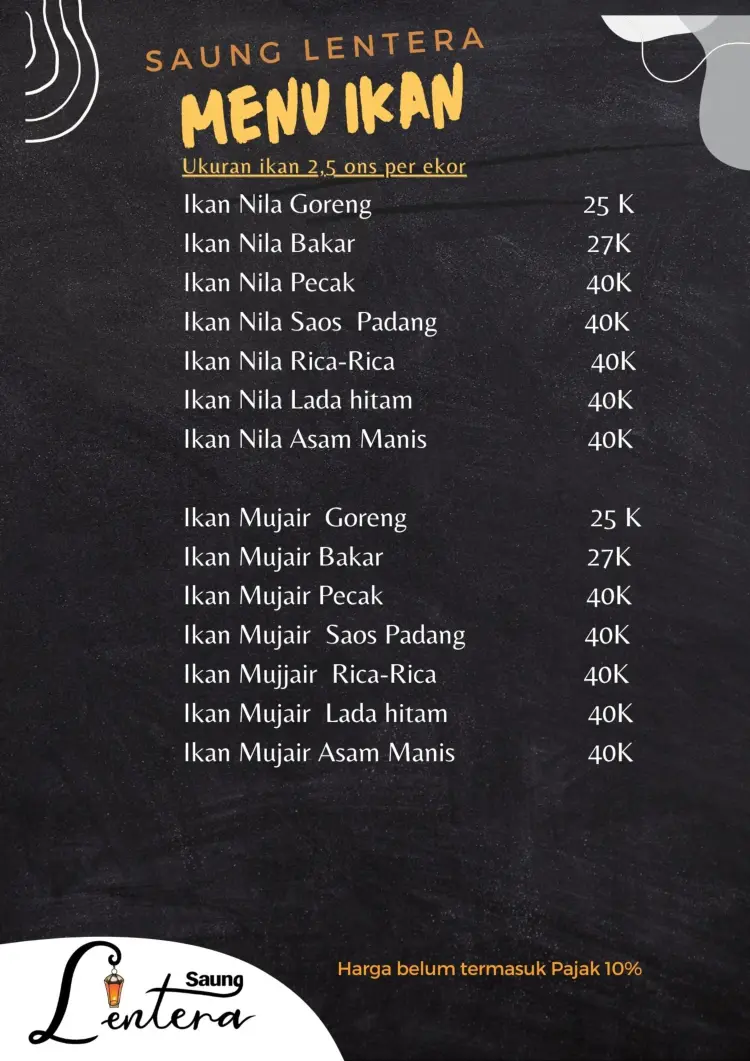 SAUNG LENTERA
MENU IKAN
Ukuran ikan 2,5 ons per ekor
Ikan Nila Goreng 25 K
Ikan Nila Bakar 27K
Ikan Nila Pecak 40K
Ikan Nila Saos Padang 40K
Ikan Nila Rica-Rica 40K
Ikan Nila Lada hitam 40K
Ikan Nila Asam Manis 40K
Ikan Mujair Goreng 25 K
Ikan Mujair Bakar 27K
Ikan Mujair Pecak 40K
Ikan Mujair Saos Padang 40K
Ikan Mujjair Rica-Rica 40K
Ikan Mujair Lada hitam 40K
Ikan Mujair Asam Manis 40K
Harga belum termasuk Pajak 10%
Saung
Lentera